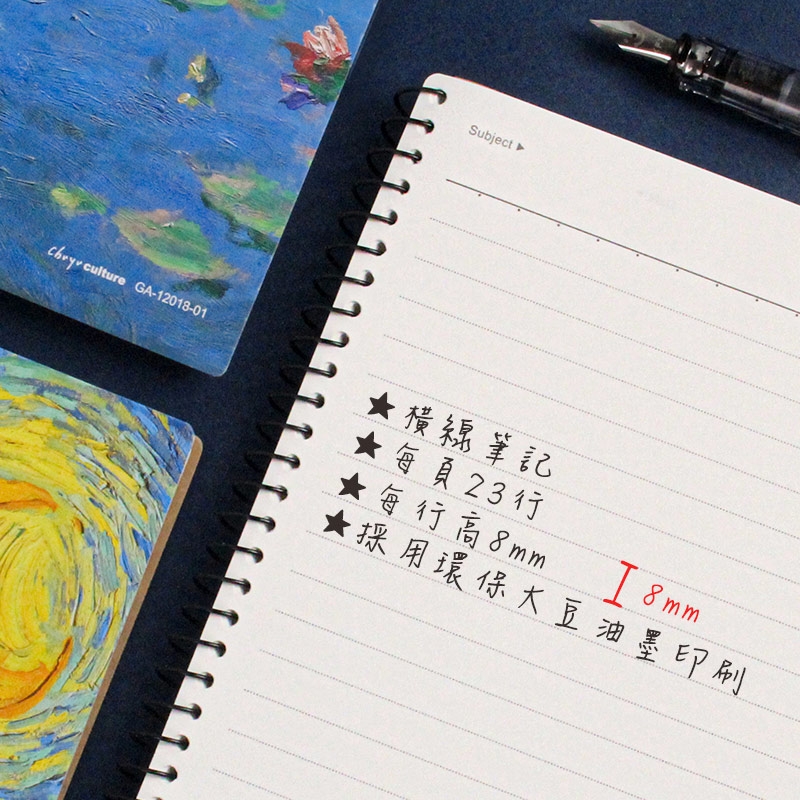 Subject ▶
Chryscultureculture GA-12018-01
★橫線筆記
★每頁23行
★每行高8mm
★採用環保大豆油墨印刷
8mm